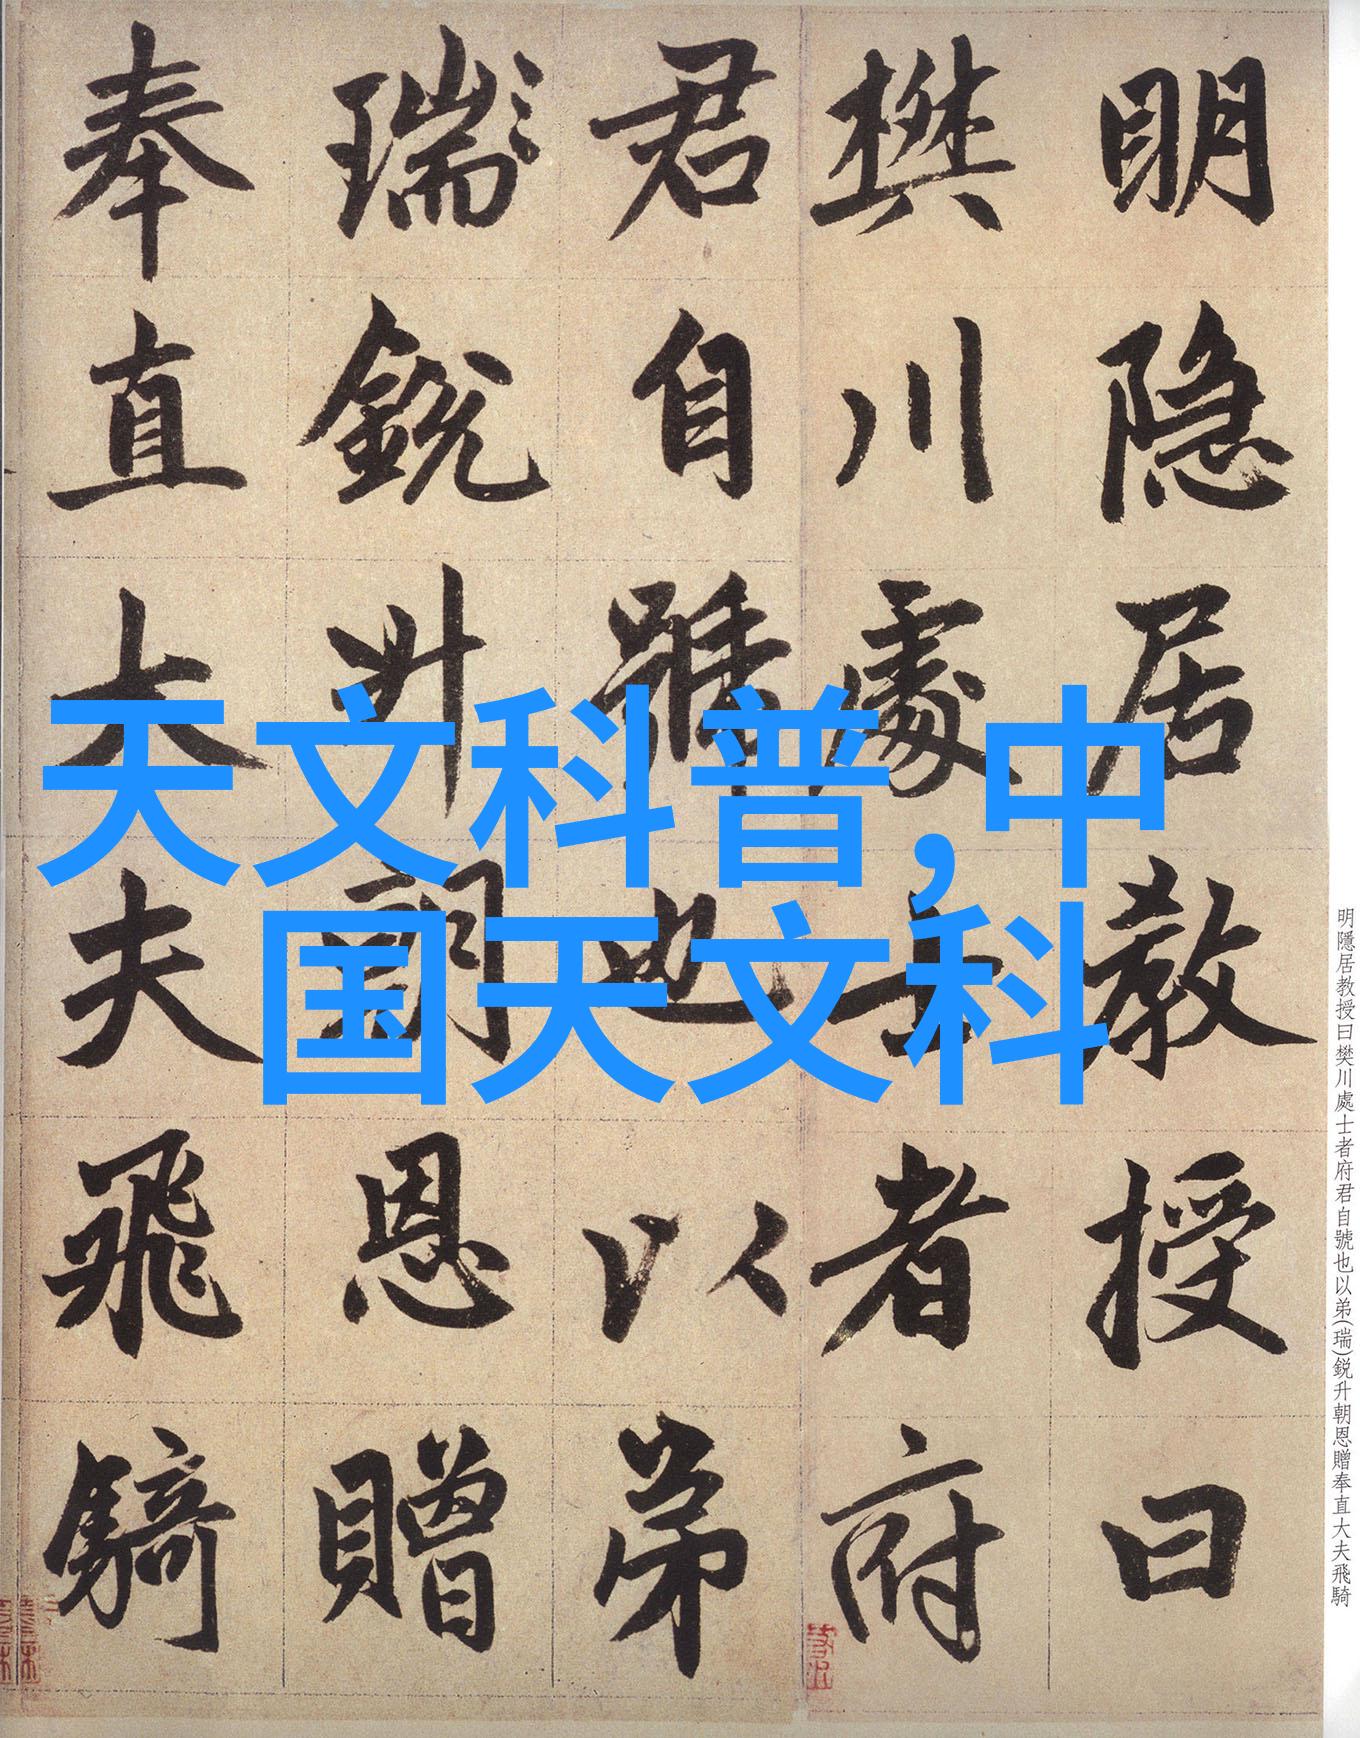 天文科普,中
国天文科
明隐居教授曰
樊川處士者府
君自號也以弟
瑞銳升朝恩贈
奉直大夫飛騎
明隱居教授曰樊川處士者府君自號也以弟(瑞)銳升朝恩贈奉直大夫飛騎